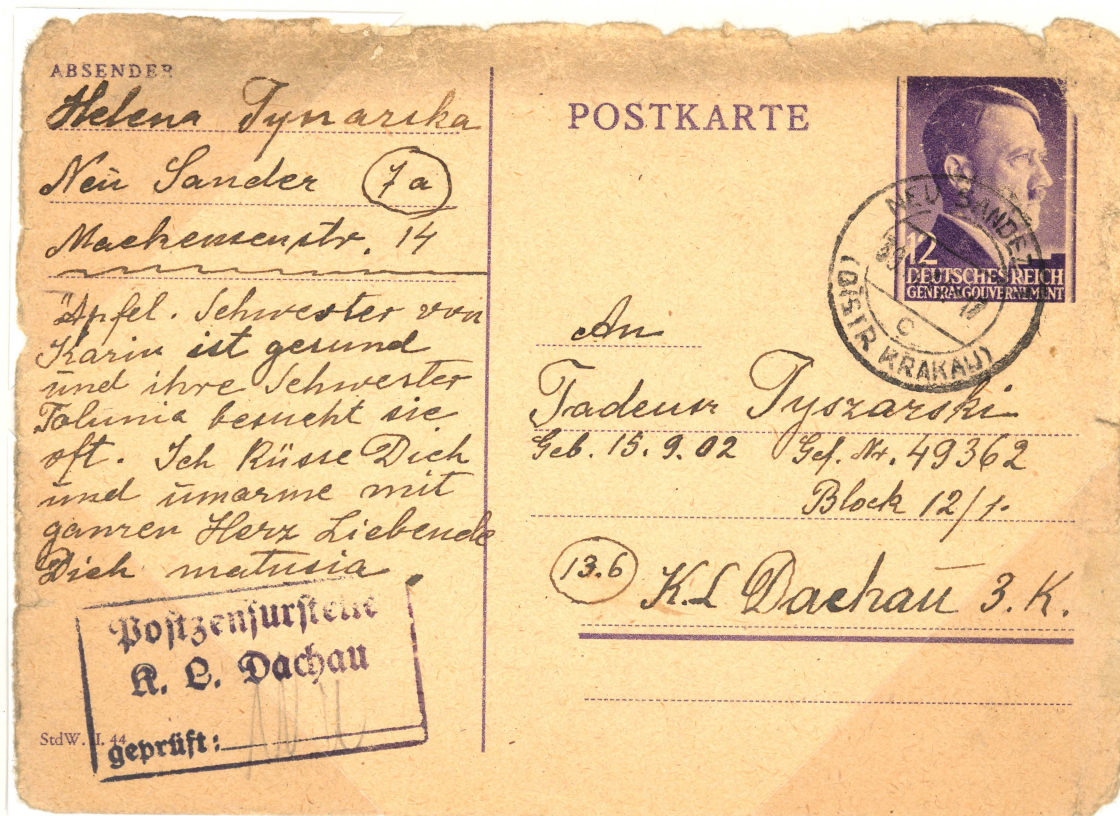 ABSENDER
Helena Tynarska
Neu Sander 7a
Mackensenstr. 14
Äpfel. Schwester von
Karin ist gesund
und ihre Schwester
Tolunia besucht sie
oft. Ich Küsse Dich
und umarme mit
ganzen Herz Liebende
Dich matusia
Postzensurstelle
K. L. Dachau
geprüft:
StdW. I. 44
POSTKARTE
12
DEUTSCHES REICH
GENERALGOUVERNEMENT
NEU SANDEZ
(DISTR KRAKAU)
c
An
Tadeusz Tyszarski
Geb. 15.9.02 Gef. Nr. 49362
Block 12/1.
13.b K.L Dachau 3.K.